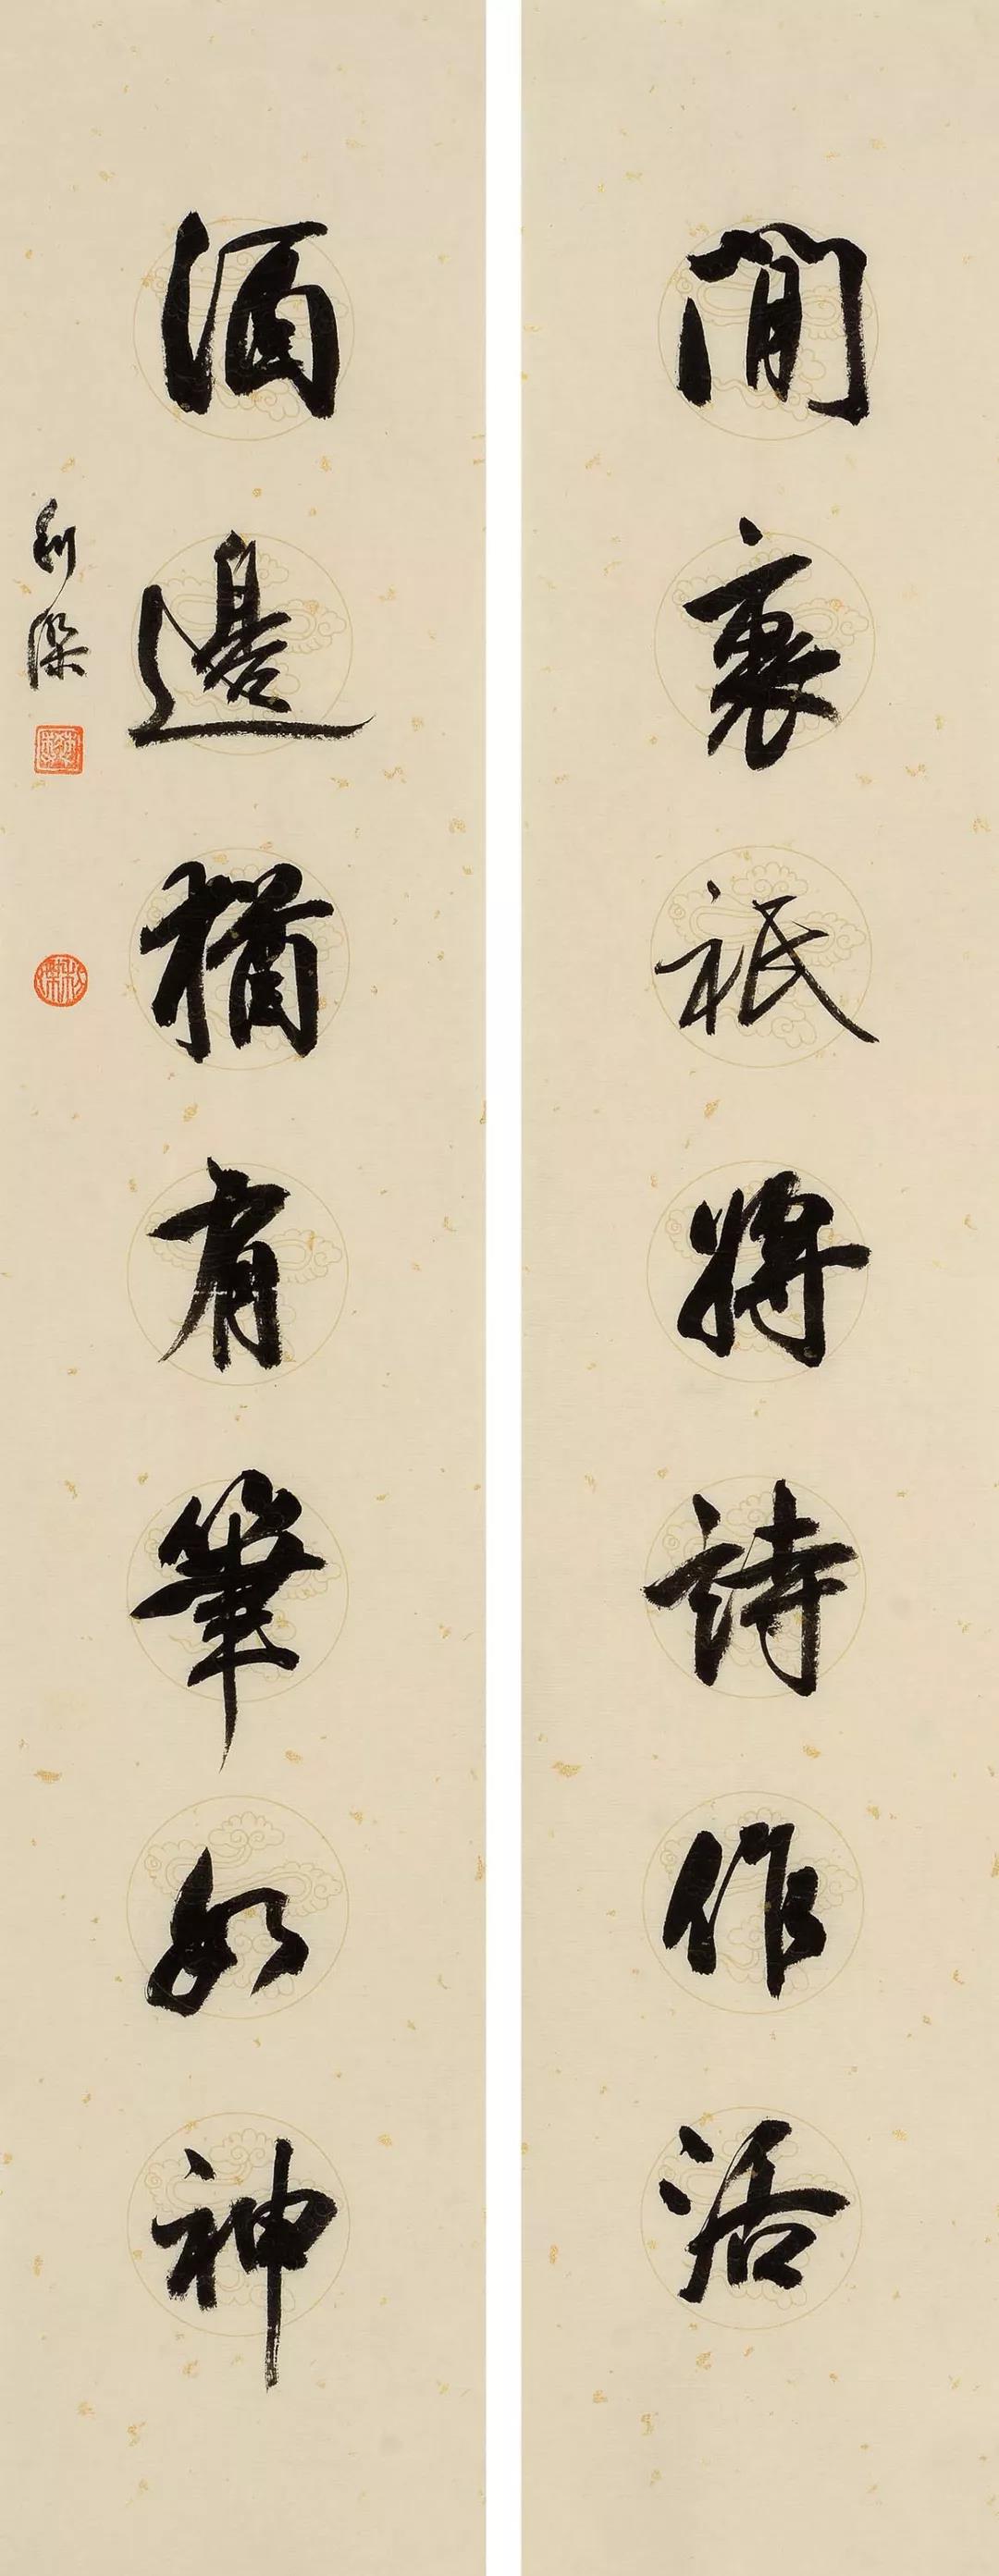 閒裏祇將詩作活
酒邊猶有筆如神
利傑